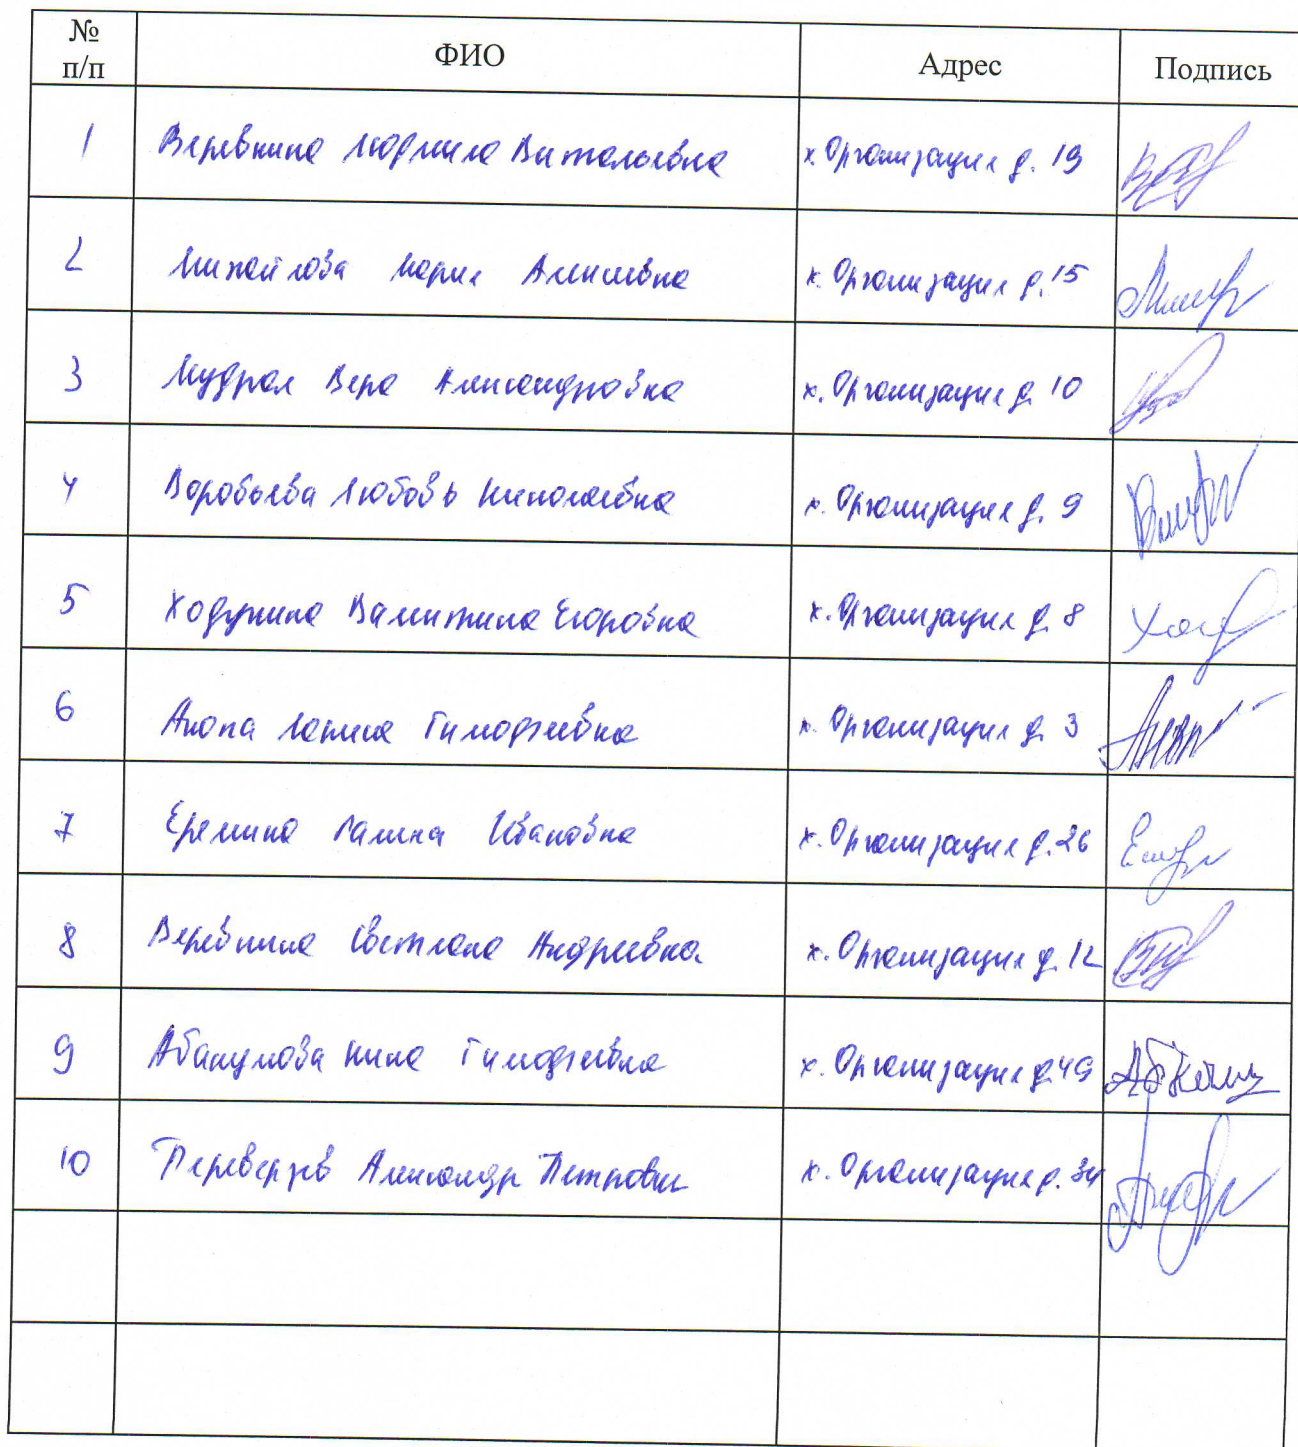 № п/п ФИО Адрес Подпись
1 Веревкина Людмила Витальевна х. Организация д. 19
2 Михайлова Мария Алексеевна х. Организация д. 15
3 Мудрая Вера Александровна х. Организация д. 10
4 Воробьева Любовь Николаевна х. Организация д. 9
5 Валентина Егоровна х. Организация д. 8
6 Тимофеевна х. Организация д. 3
7 Еремина Галина Ивановна х. Организация д. 26
8 Веревкина Светлана Андреевна х. Организация д. 12
9 Абакумова Нина Тимофеевна х. Организация д. 49
10 Переверзев Александр Петрович х. Организация д. 34